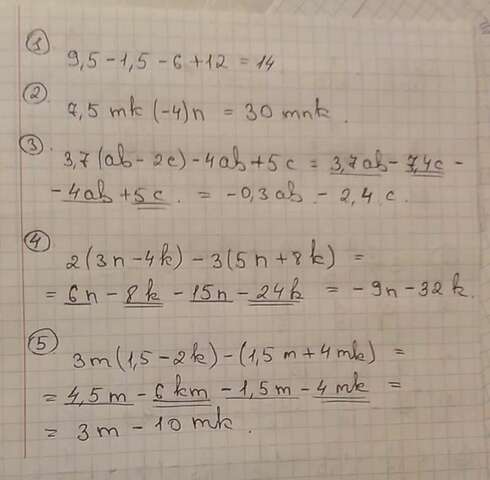 1
9,5 - 1,5 - 6 + 12 = 14
2
7,5 mk (-4)n = 30 mnk.
3
3,7(ab - 2c) - 4ab + 5c = 3,7ab - 7,4c -
- 4ab + 5c. = -0,3ab - 2,4 c.
4
2(3n - 4k) - 3(5n + 8k) =
= 6n - 8k - 15n - 24k = -9n - 32k.
5
3m(1,5 - 2k) - (1,5m + 4mk) =
= 4,5m - 6km - 1,5m - 4mk =
= 3m - 10mk.